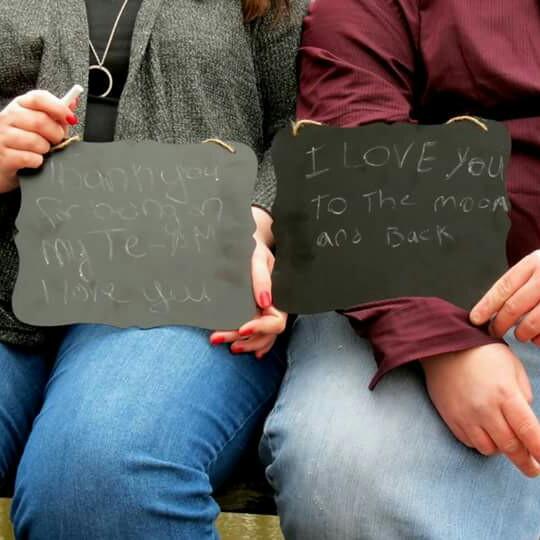 Thank you
for being in
my Te-Am
I love you
I LOVE you
TO The moon
and Back